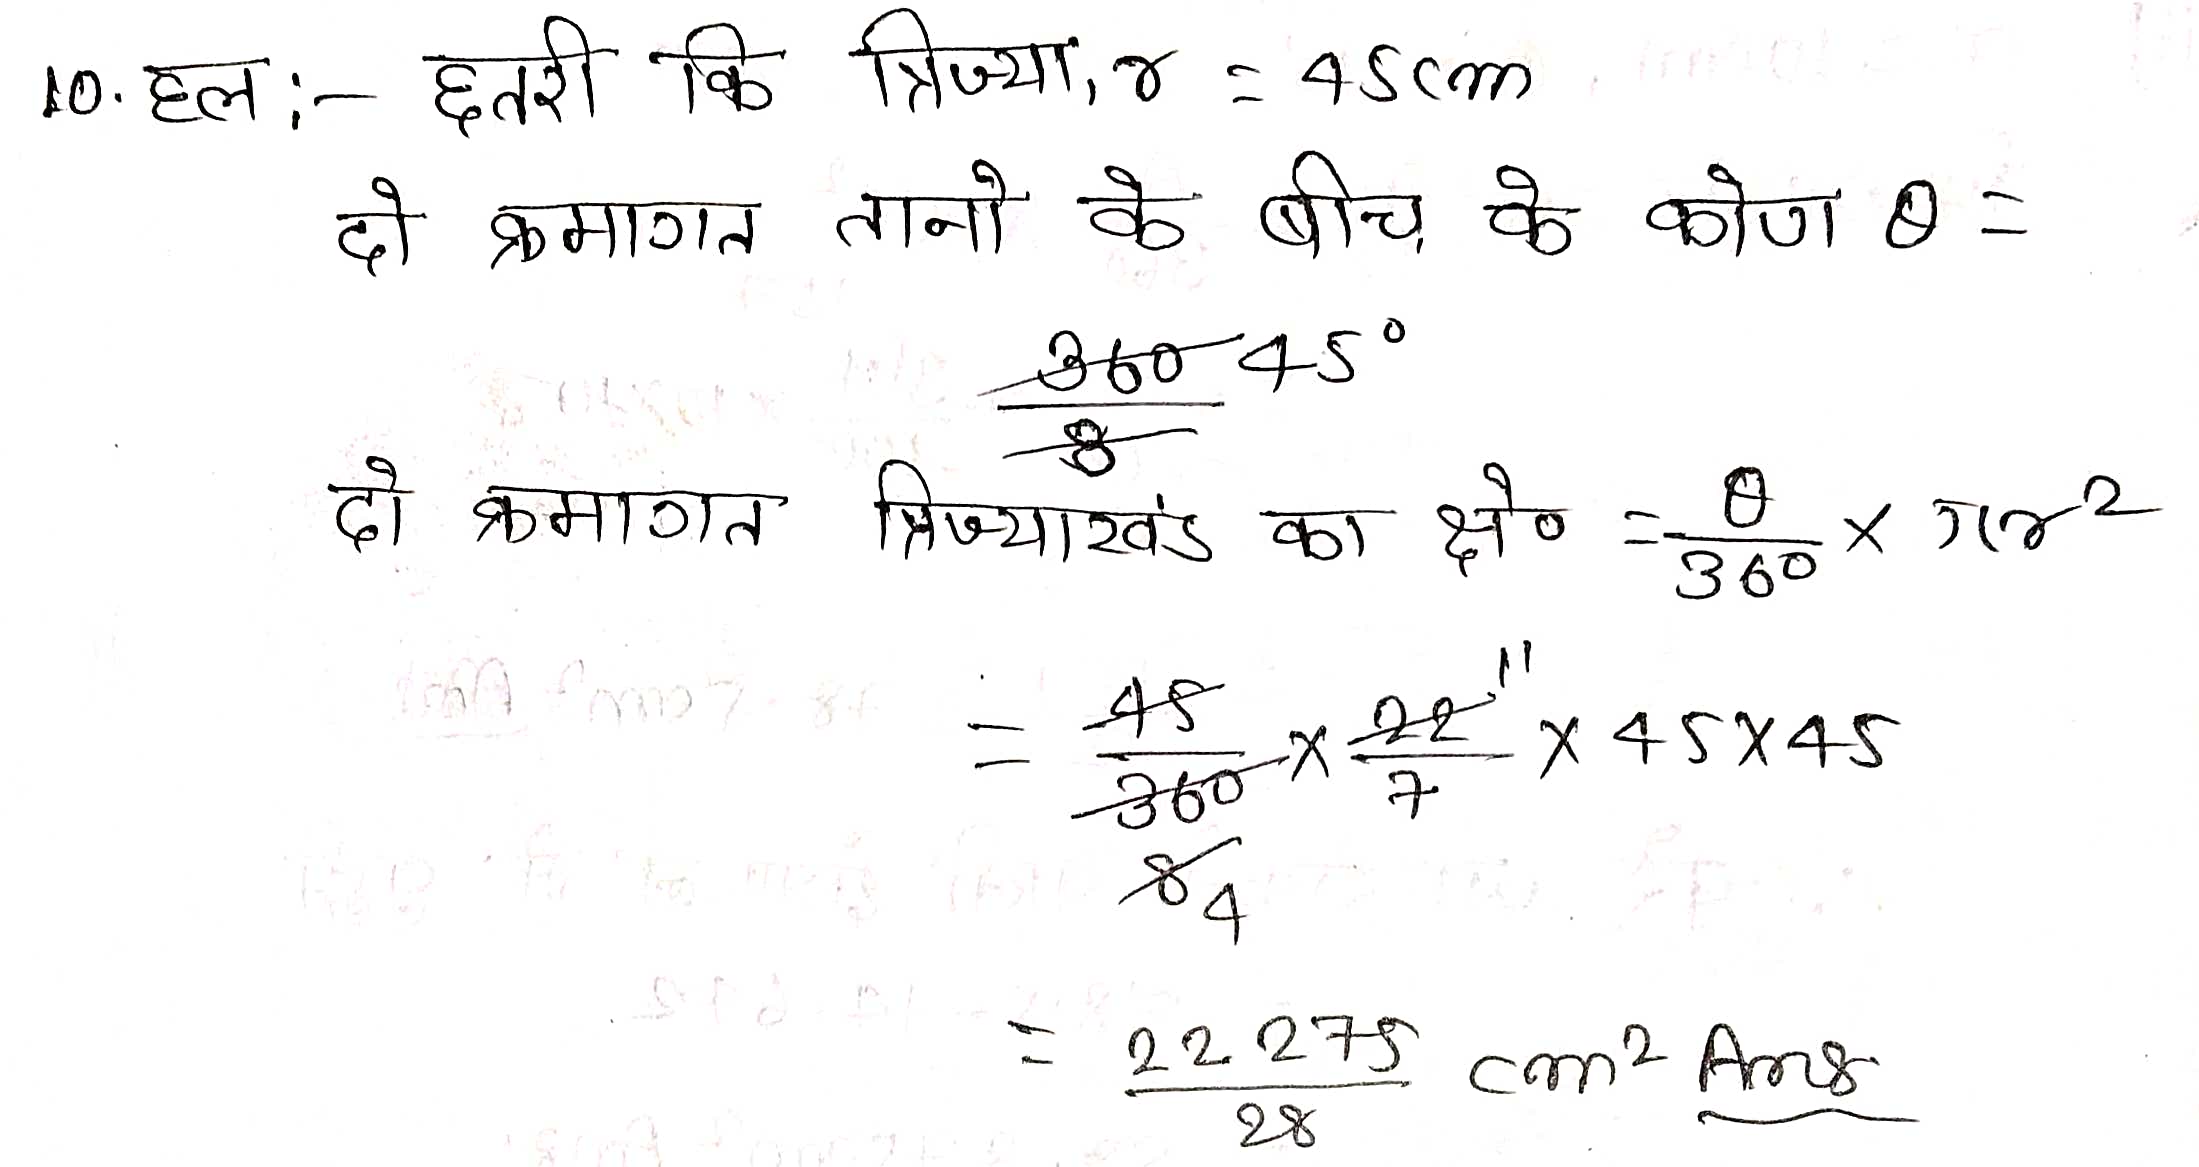 10. हल :- छतरी कि त्रिज्या, r = 45cm
दो क्रमागत तानो के बीच के कोण θ =
360/8 45°
दो क्रमागत त्रिज्याखंड का क्षे० = θ/360 × πr²
= 45/360 × 22/7 11 × 45 × 45
8 4
= 22275/28 cm² Ans